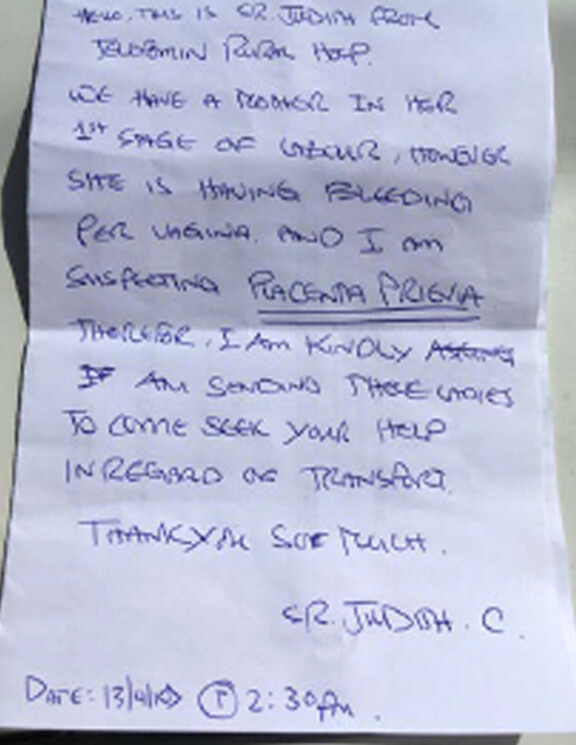 HELLO, THIS IS SR. JUDITH FROM
RURAL HOSP.
WE HAVE A MOTHER IN HER
1ST STAGE OF LABOUR, HOWEVER
SHE IS HAVING BLEEDING
PER VAGINA. AND I AM
SUSPECTING PLACENTA PRIEVIA
THEREFOR, I AM KINDLY ASKING
IF AM SENDING THESE LADIES
TO COME SEEK YOUR HELP
IN REGARD OF TRANSPORT.
THANKYOU SOE MUCH.
SR. JUDITH. C.
DATE: 13/4/ T 2:30pm.